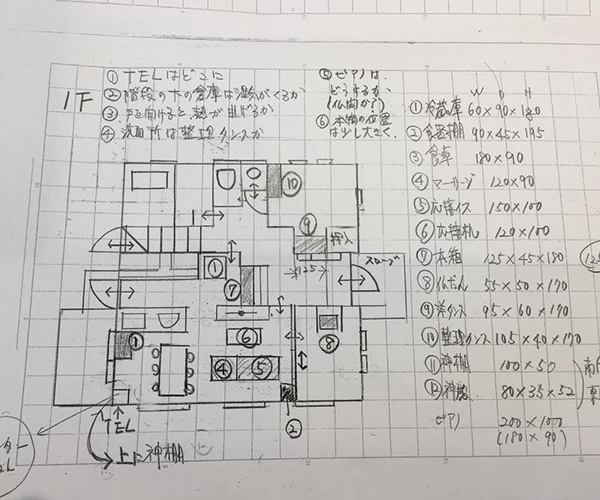 1F
① TELはどこに
② 階段の下の倉庫は湿気がくるか
③ 戸を開けると、熱が逃げるか
④ 洗面所は整理タンスか
⑤ ピアノは、
どうするか、
⑥ 本箱の位置
は少し大きく、
W D H
① 冷蔵庫 60×90×180
② 食器棚 90×45×195
③ 食卓 180×90
④ マッサージ 120×90
⑤ 応接イス 150×100
⑥ 応接机 120×100
⑦ 本箱 125×45×180
⑧ 仏だん 55×50×170
⑨ 洋タンス 95×60×170
⑩ 整理タンス 105×40×170
⑪ 神棚 100×50
⑫ 80×35×52
ピアノ 200×100
(180×90)
⑩
⑨
押入
スロープ
①
⑦
125
①
⑥
⑧
④ ⑤
②
TEL
上に神棚